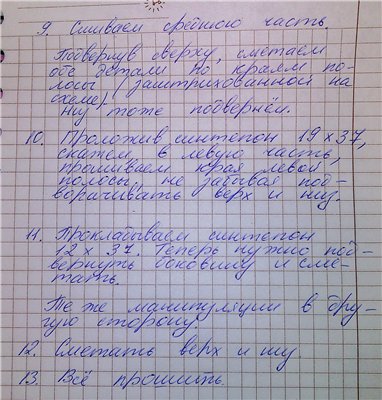 9. Сшиваем среднюю часть.
Подвернув сверху, сметаем
обе детали по краям по-
лосы (заштрихованной на
схеме).
Низ тоже подвернём.
10. Проложив синтепон 19 х 37,
скатем в левую часть,
прошиваем края левой
полосы, не забывая под-
ворачивать верх и низ.
11. Прокладываем синтепон
12 х 37. Теперь нужно под-
вернуть боковину и сме-
тать.
Те же манипуляции в дру-
гую сторону.
12. Сметать верх и низ.
13. Всё прошить.